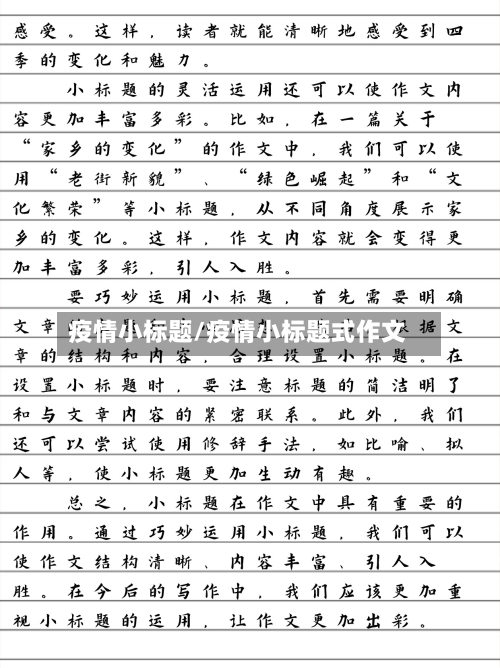 感受。这样，读者就能清晰地感受到四
季的变化和魅力。
小标题的灵活运用还可以使作文内
容更加丰富多彩。比如，在一篇关于
“家乡的变化”的作文中，我们可以使
用“老街新貌”、“绿色崛起”和“文
化繁荣”等小标题，从不同角度展示家
乡的变化。这样，作文内容就会变得更
加丰富多彩，引人入胜。
要巧妙运用小标题，首先需要明确
疫情小标题/疫情小标题式作文
文章 据文
章的结构和内容，合理设置小标题。在
设置小标题时，要注意标题的简洁明了
和与文章内容的紧密联系。此外，我们
还可以尝试使用修辞手法，如比喻、拟
人等，使小标题更加生动有趣。
总之，小标题在作文中具有重要的
作用。通过巧妙运用小标题，我们可以
使作文结构清晰、内容丰富、引人入
胜。在今后的写作中，我们应该更加重
视小标题的运用，让作文更加出彩。